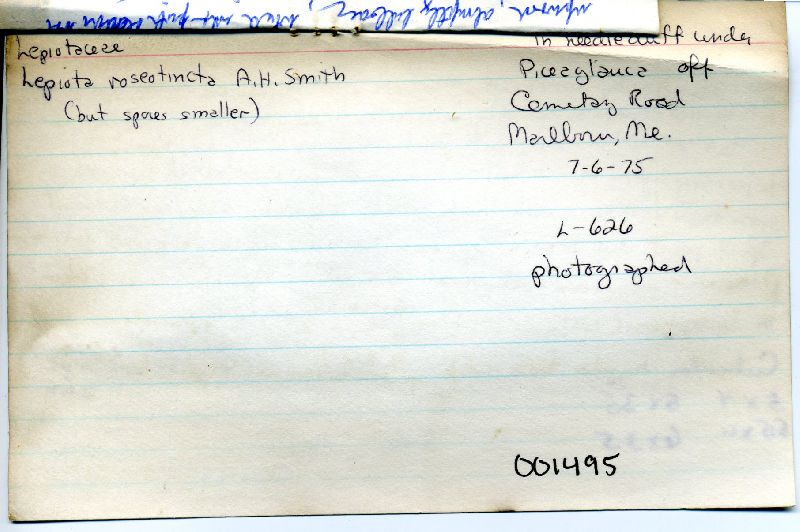 Lepiotaceae
Lepiota roseotincta A.H. Smith
(but spores smaller)
in needle duff under
Picea glauca off
Cemetary Road
Marlboro, Me.
7-6-75
L-626
photographed
001495